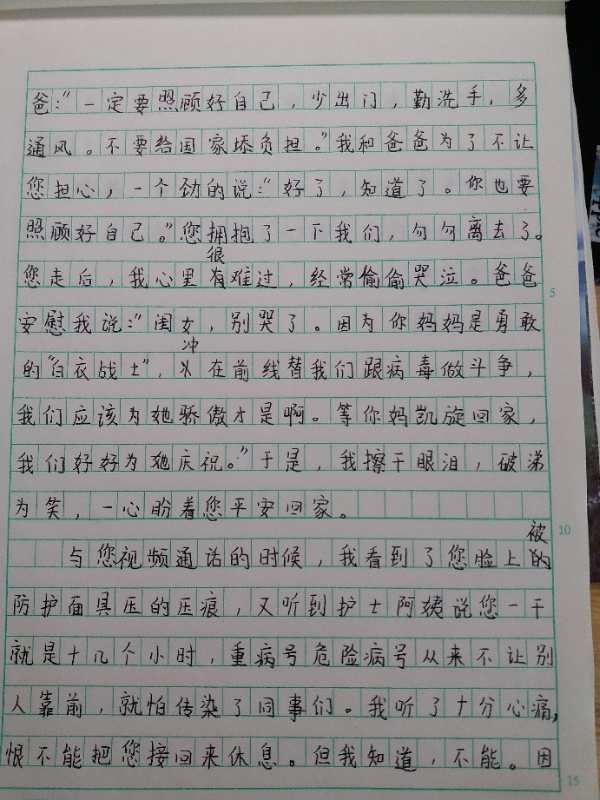 爸:"一定要照顾好自己，少出门，勤洗手，多
通风。不要给国家添负担。"我和爸爸为了不让
您担心，一个劲的说:"好了，知道了。你也要
照顾好自己。"您拥抱了一下我们，匆匆离去了。
很
您走后，我心里有难过，经常偷偷哭泣。爸爸
5
安慰我说:"闺女，别哭了。因为你妈妈是勇敢
冲
的"白衣战士"，在前线替我们跟病毒做斗争，
我们应该为她骄傲才是啊。等你妈凯旋回家，
我们好好为她庆祝。"于是，我擦干眼泪，破涕
为笑，一心盼着您平安回家。
被
10
与您视频通话的时候，我看到了您脸上的
防护面具压的压痕，又听到护士阿姨说您一干
就是十几个小时，重病号危险病号从来不让别
人靠前，就怕传染了同事们。我听了十分心痛，
恨不能把您接回来休息。但我知道，不能。因
15